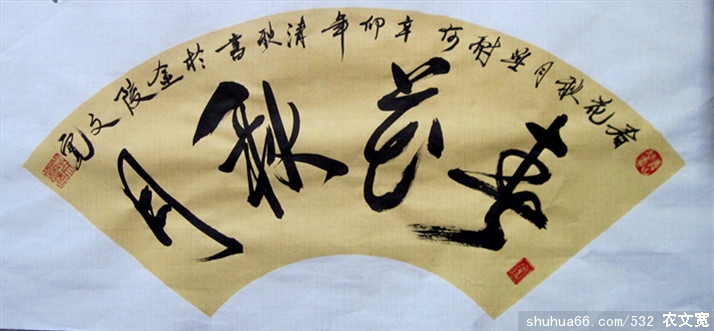 春花秋月
春花秋月無 辛卯年清秋書於金陵文寬
shuhua66.com/532 农文宽